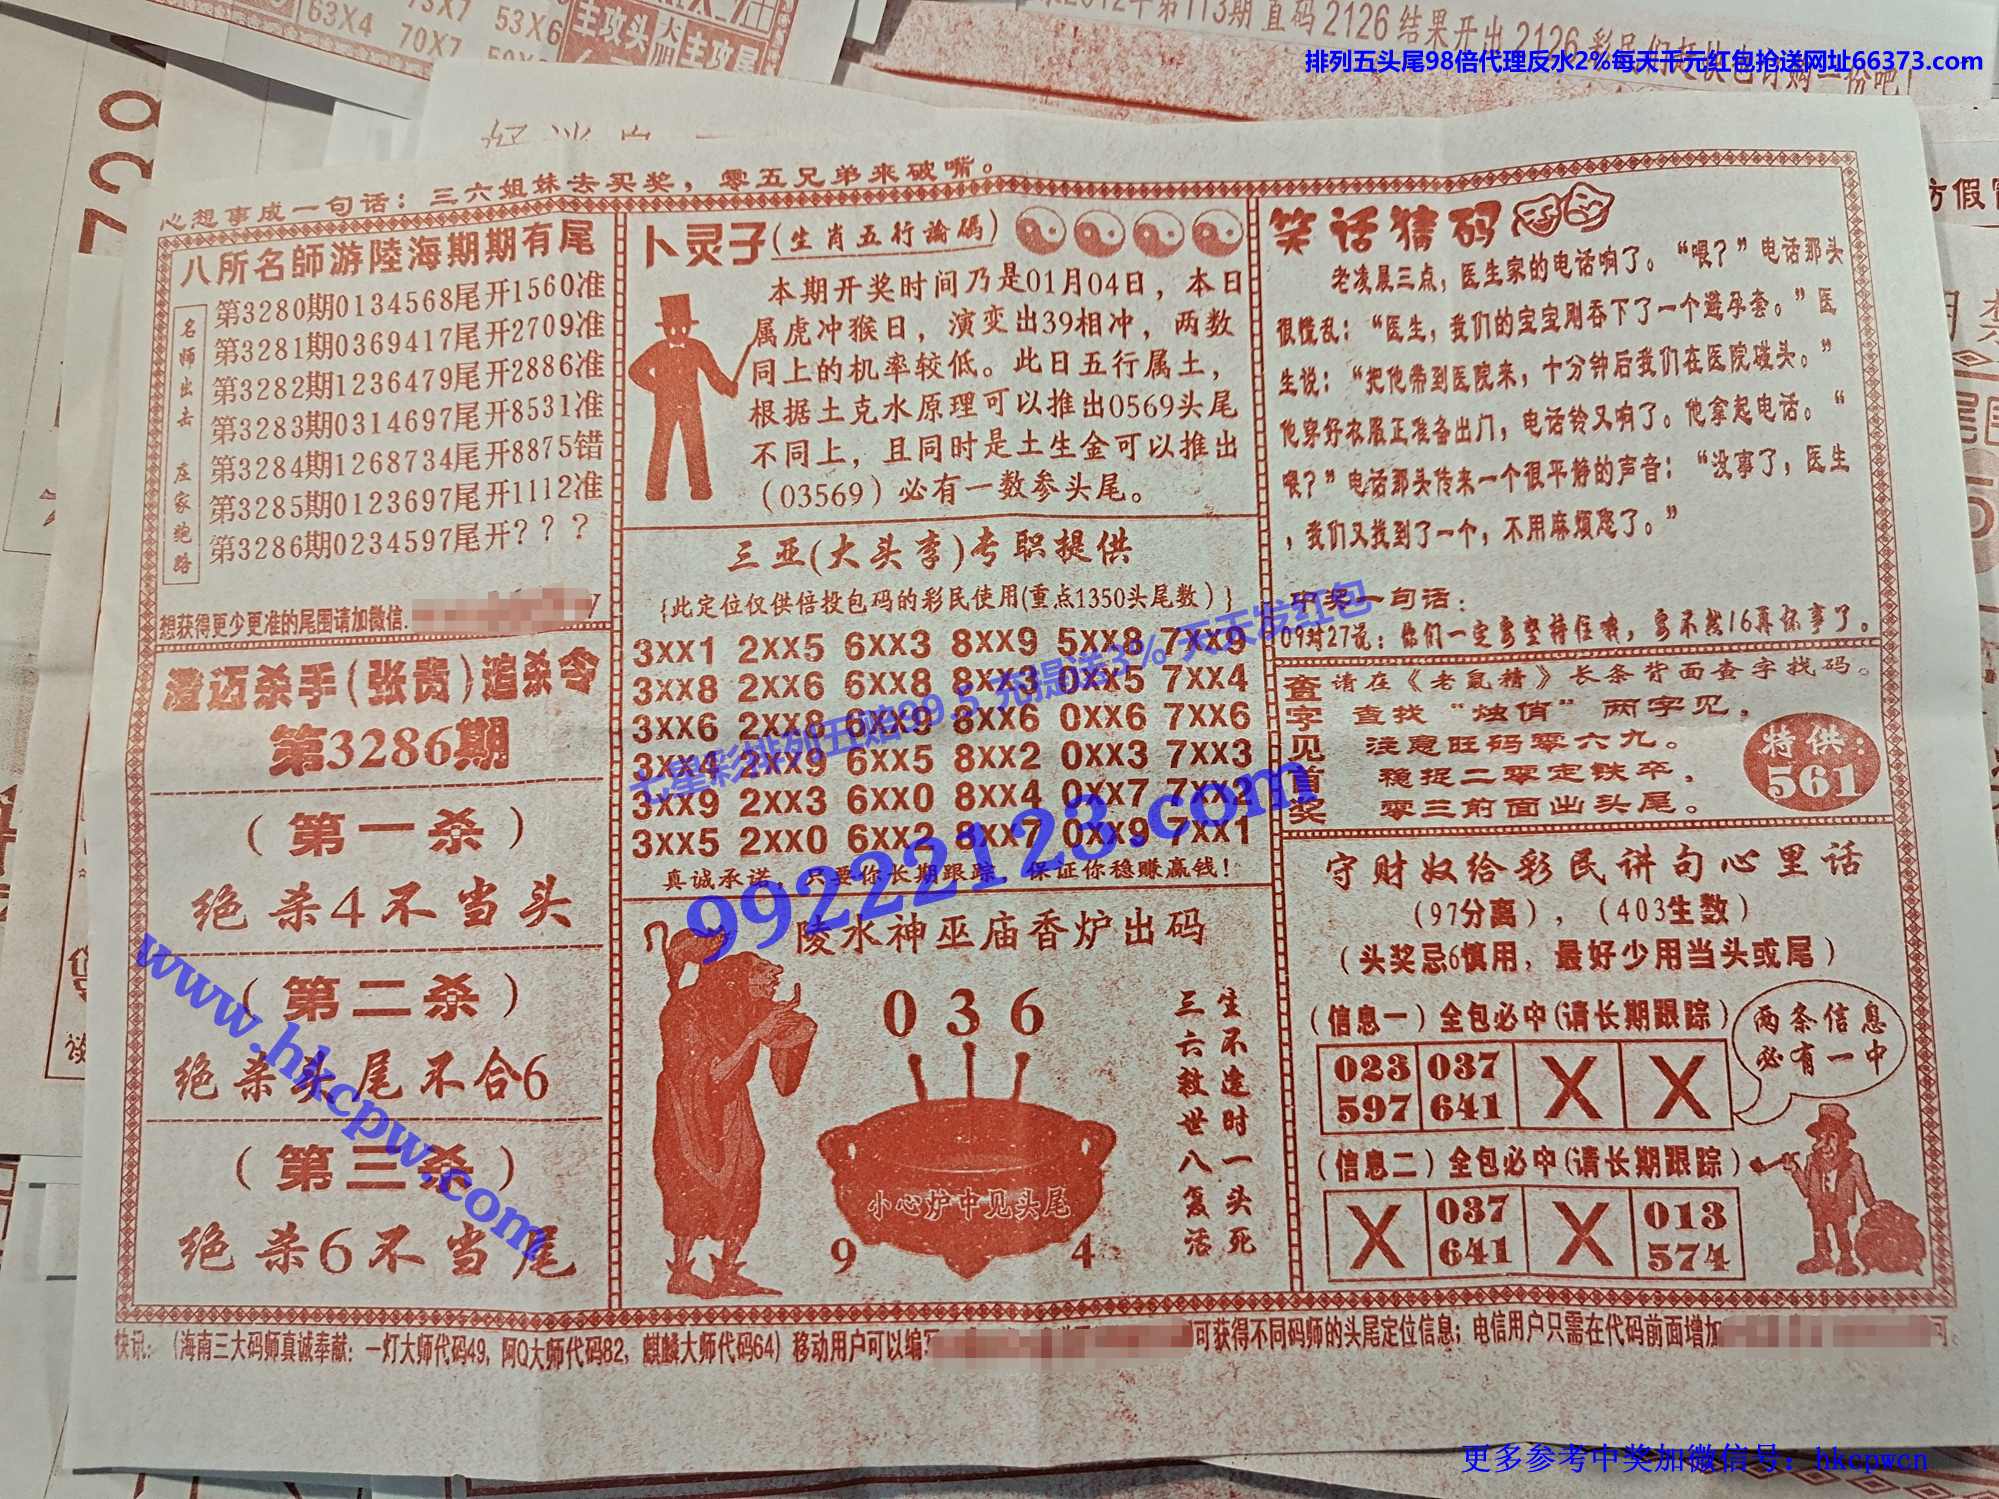 63X4 70X7 53X6
主攻头 主攻尾
年第113期 直码 2126 结果开出 2126
排列五头尾98倍代理反水2%每天千元红包抢送网址66373.com
心想事成一句话：三六姐妹去买奖，零五兄弟来破嘴。
八所名師游陸海期期有尾
名师出击 庄家跑路
第3280期0134568尾开1560准
第3281期0369417尾开2709准
第3282期1236479尾开2886准
第3283期0314697尾开8531准
第3284期1268734尾开8875错
第3285期0123697尾开1112准
第3286期0234597尾开？？？
想获得更少更准的尾围请加微信.
澄迈杀手(张贵)追杀令
第3286期
（第一杀）
绝杀4不当头
（第二杀）
绝杀头尾不合6
（第三杀）
绝杀6不当尾
卜灵子(生肖五行論碼)
本期开奖时间乃是01月04日，本日
属虎冲猴日，演变出39相冲，两数
同上的机率较低。此日五行属土，
根据土克水原理可以推出0569头尾
不同上，且同时是土生金可以推出
（03569）必有一数参头尾。
三亚(大头李)专职提供
{此定位仅供倍投包码的彩民使用(重点1350头尾数）}
3XX1 2XX5 6XX3 8XX9 5XX8 7XX9
3XX8 2XX6 6XX8 8XX3 0XX5 7XX4
3XX6 2XX8 6XX9 8XX6 0XX6 7XX6
3XX4 2XX9 6XX5 8XX2 0XX3 7XX3
3XX9 2XX3 6XX0 8XX4 0XX7 7XX2
3XX5 2XX0 6XX2 8XX7 0XX9 7XX1
真诚承诺：只要你长期跟踪，保证你稳赚赢钱！
陵水神巫庙香炉出码
0 3 6
小心炉中见头尾
9 4
生不逢时一头死
三六救世八复活
笑话猜码
老凌晨三点，医生家的电话响了。“喂？”电话那头
很慌乱：“医生，我们的宝宝刚吞下了一个避孕套。”医
生说：“把他带到医院来，十分钟后我们在医院碰头。”
他穿好衣服正准备出门，电话铃又响了。他拿起电话。“
喂？”电话那头传来一个很平静的声音：“没事了，医生
，我们又找到了一个，不用麻烦您了。”
中奖一句话：
09对27说：你们一定要坚持住哦，要不然16再坏事了。
查字见首奖
请在《老鼠精》长条背面查字找码。
查找“烛俏”两字见，
注意旺码零六九。
稳捉二零定铁卒，
零三前面出头尾。
特供：
561
守财奴给彩民讲句心里话
（97分离），（403生数）
（头奖忌6慎用，最好少用当头或尾）
（信息一）全包必中(请长期跟踪）
两条信息
必有一中
023 037 X X
597 641
（信息二）全包必中(请长期跟踪）
X 037 X 013
641 574
快讯：（海南三大码师真诚奉献：一灯大师代码49，阿Q大师代码82，麒麟大师代码64）移动用户可以编写
可获得不同码师的头尾定位信息；电信用户只需在代码前面增加
可。
七星彩排列五赔99.5 充提送3% 天天发红包
99222123.com
www.hkcpw.com
更多参考中奖加微信号：hkcpwcn